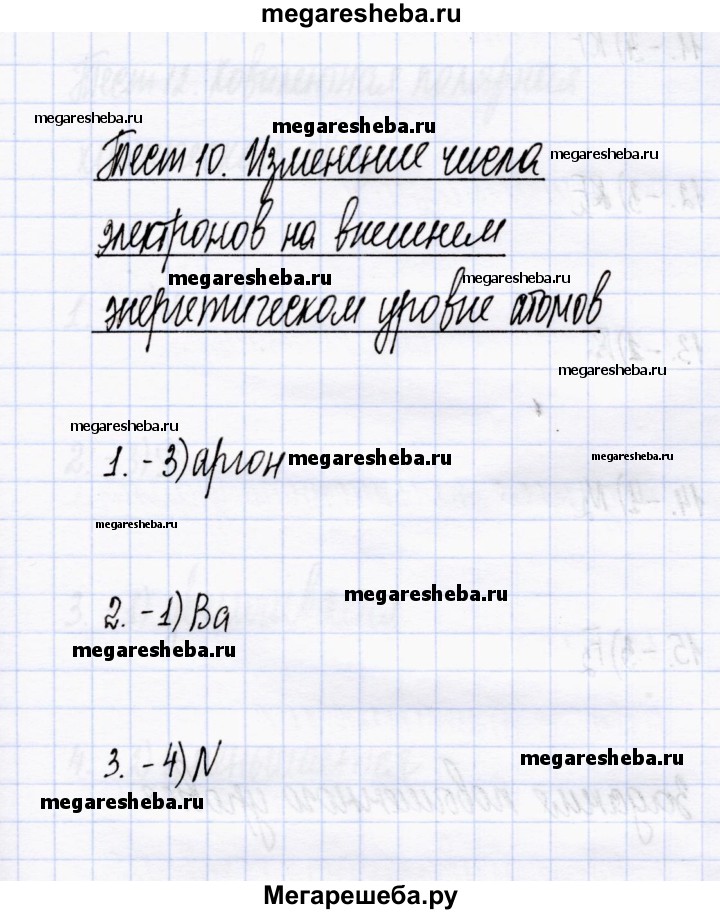 megaresheba.ru
megaresheba.ru
megaresheba.ru
Тест 10. Изменение числа
megaresheba.ru
электронов на внешнем
megaresheba.ru
megaresheba.ru
энергетическом уровне атомов
megaresheba.ru
megaresheba.ru
1. - 3) аргон
megaresheba.ru
megaresheba.ru
megaresheba.ru
megaresheba.ru
2. - 1) Ba
megaresheba.ru
3. - 4) N
megaresheba.ru
megaresheba.ru
Мегарешеба.ру